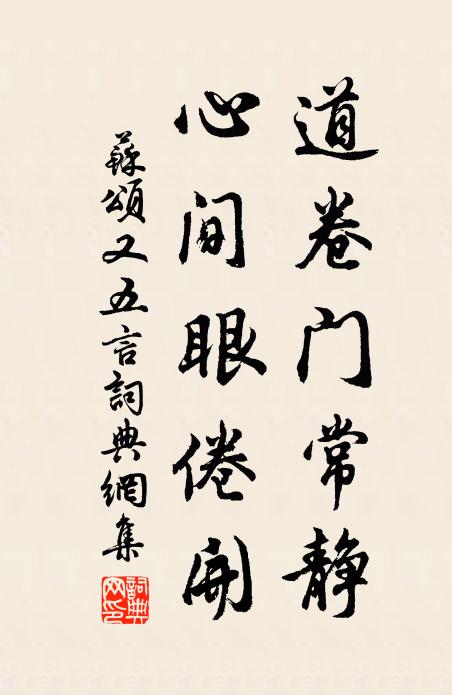 道卷门常静
心间眼倦開
蘇頌又五言詞典網集
詞典网印